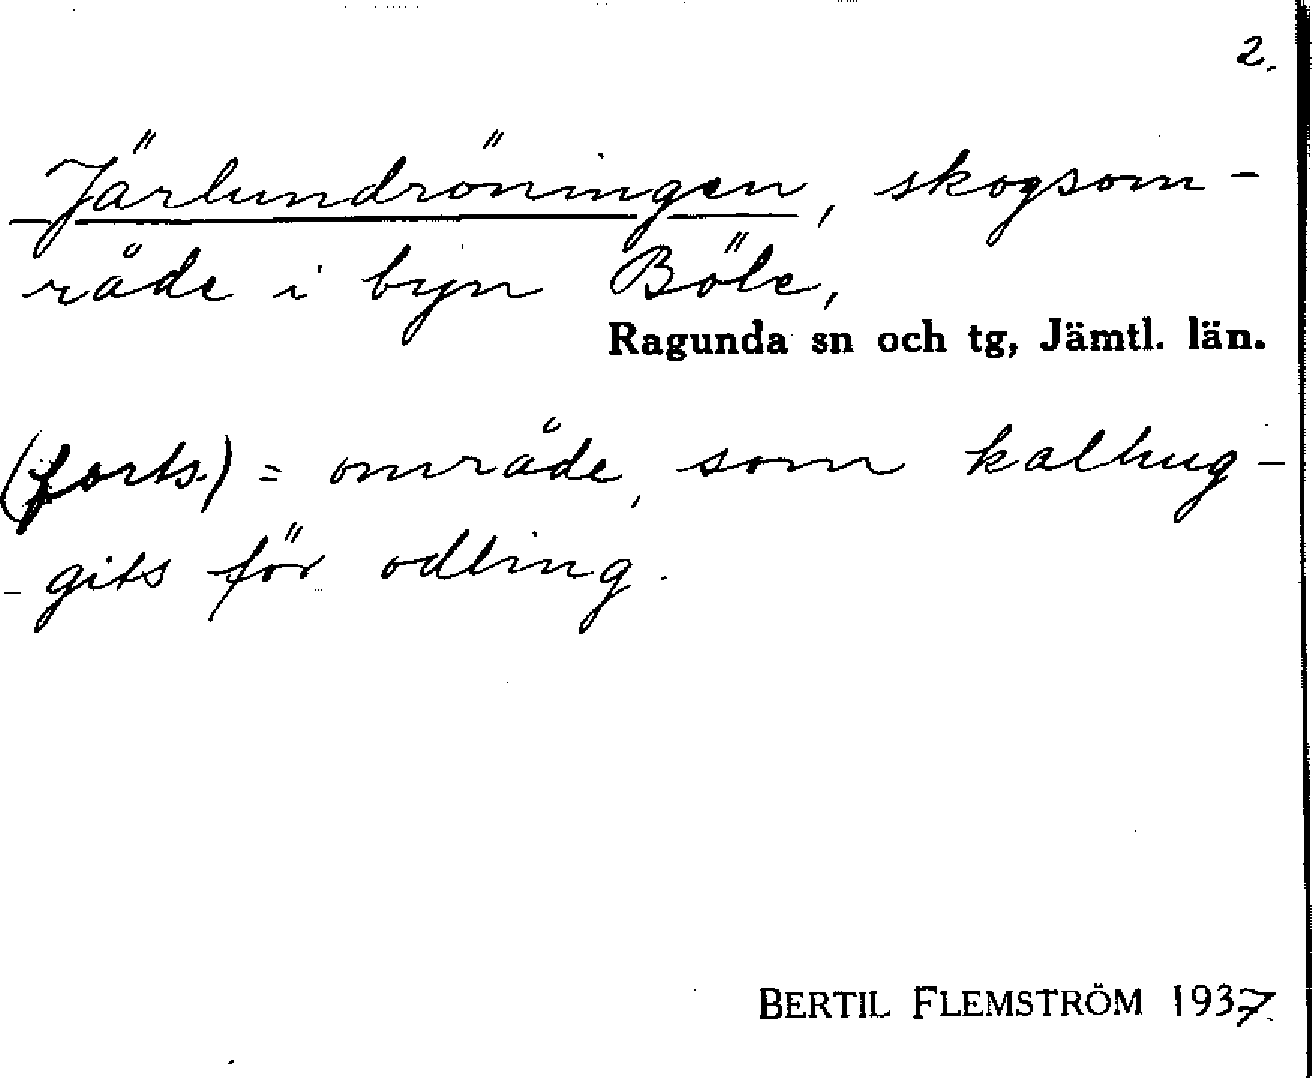 2.
Järlundröningen, skogsom-
råde i byn Böle,
Ragunda sn och tg, Jämtl. län.
(forts.) = område, som kalhug-
gits för odling.
BERTIL FLEMSTRÖM 1937